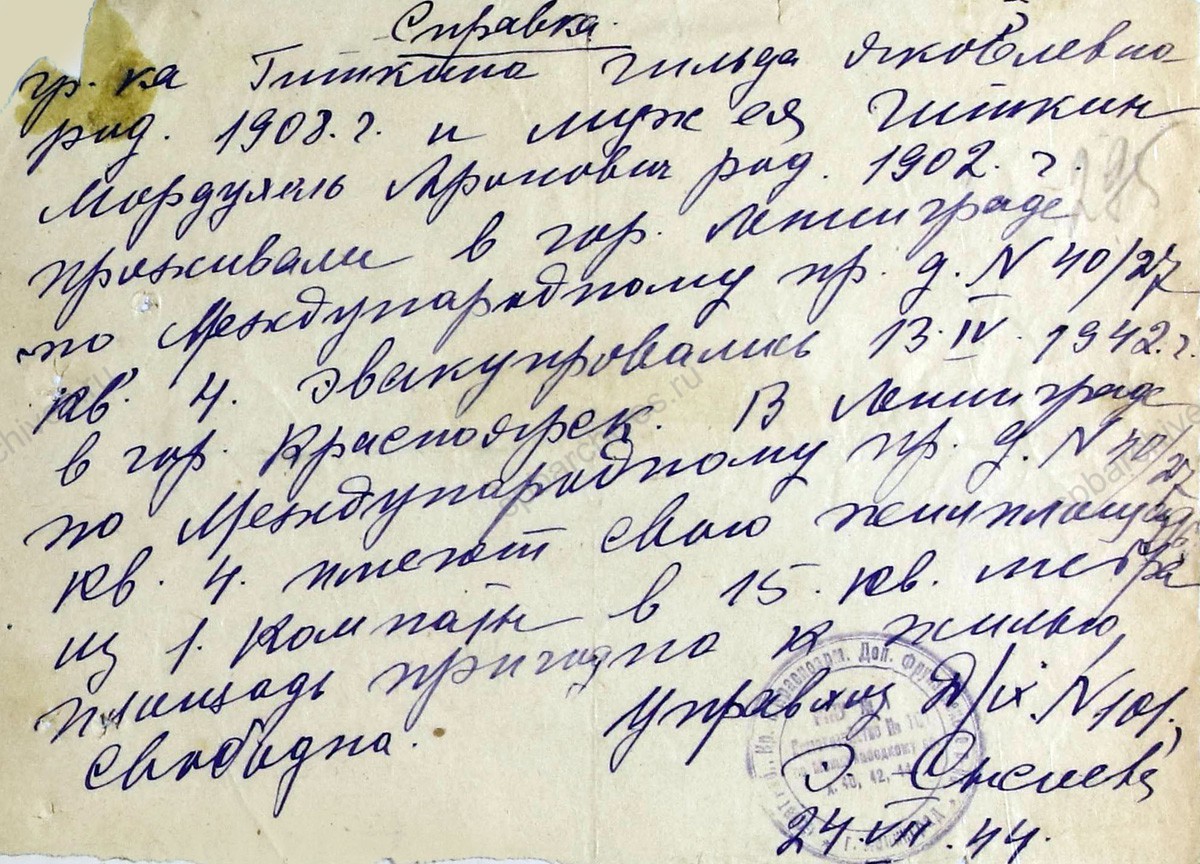 Справка.
гр. ка Гиткина Гильда Яковлевна
род. 1908. г. и муж ея Гиткин
Мордухель Аронович род. 1902. г.
проживали в гор. Ленинграде
по Международному пр. д. N 40/27
кв. 4. Эвакуировались 13. IV. 1942. г.
в гор. Красноярск. В Ленинграде
по Международному пр. д. N 40/27
кв. 4. имеют свою жилплощадь
из 1. комнаты в 15. кв. метра
площадь пригодна к жилью,
свободна.
Управляющ Д/х. N 101.
24. VII. 44.